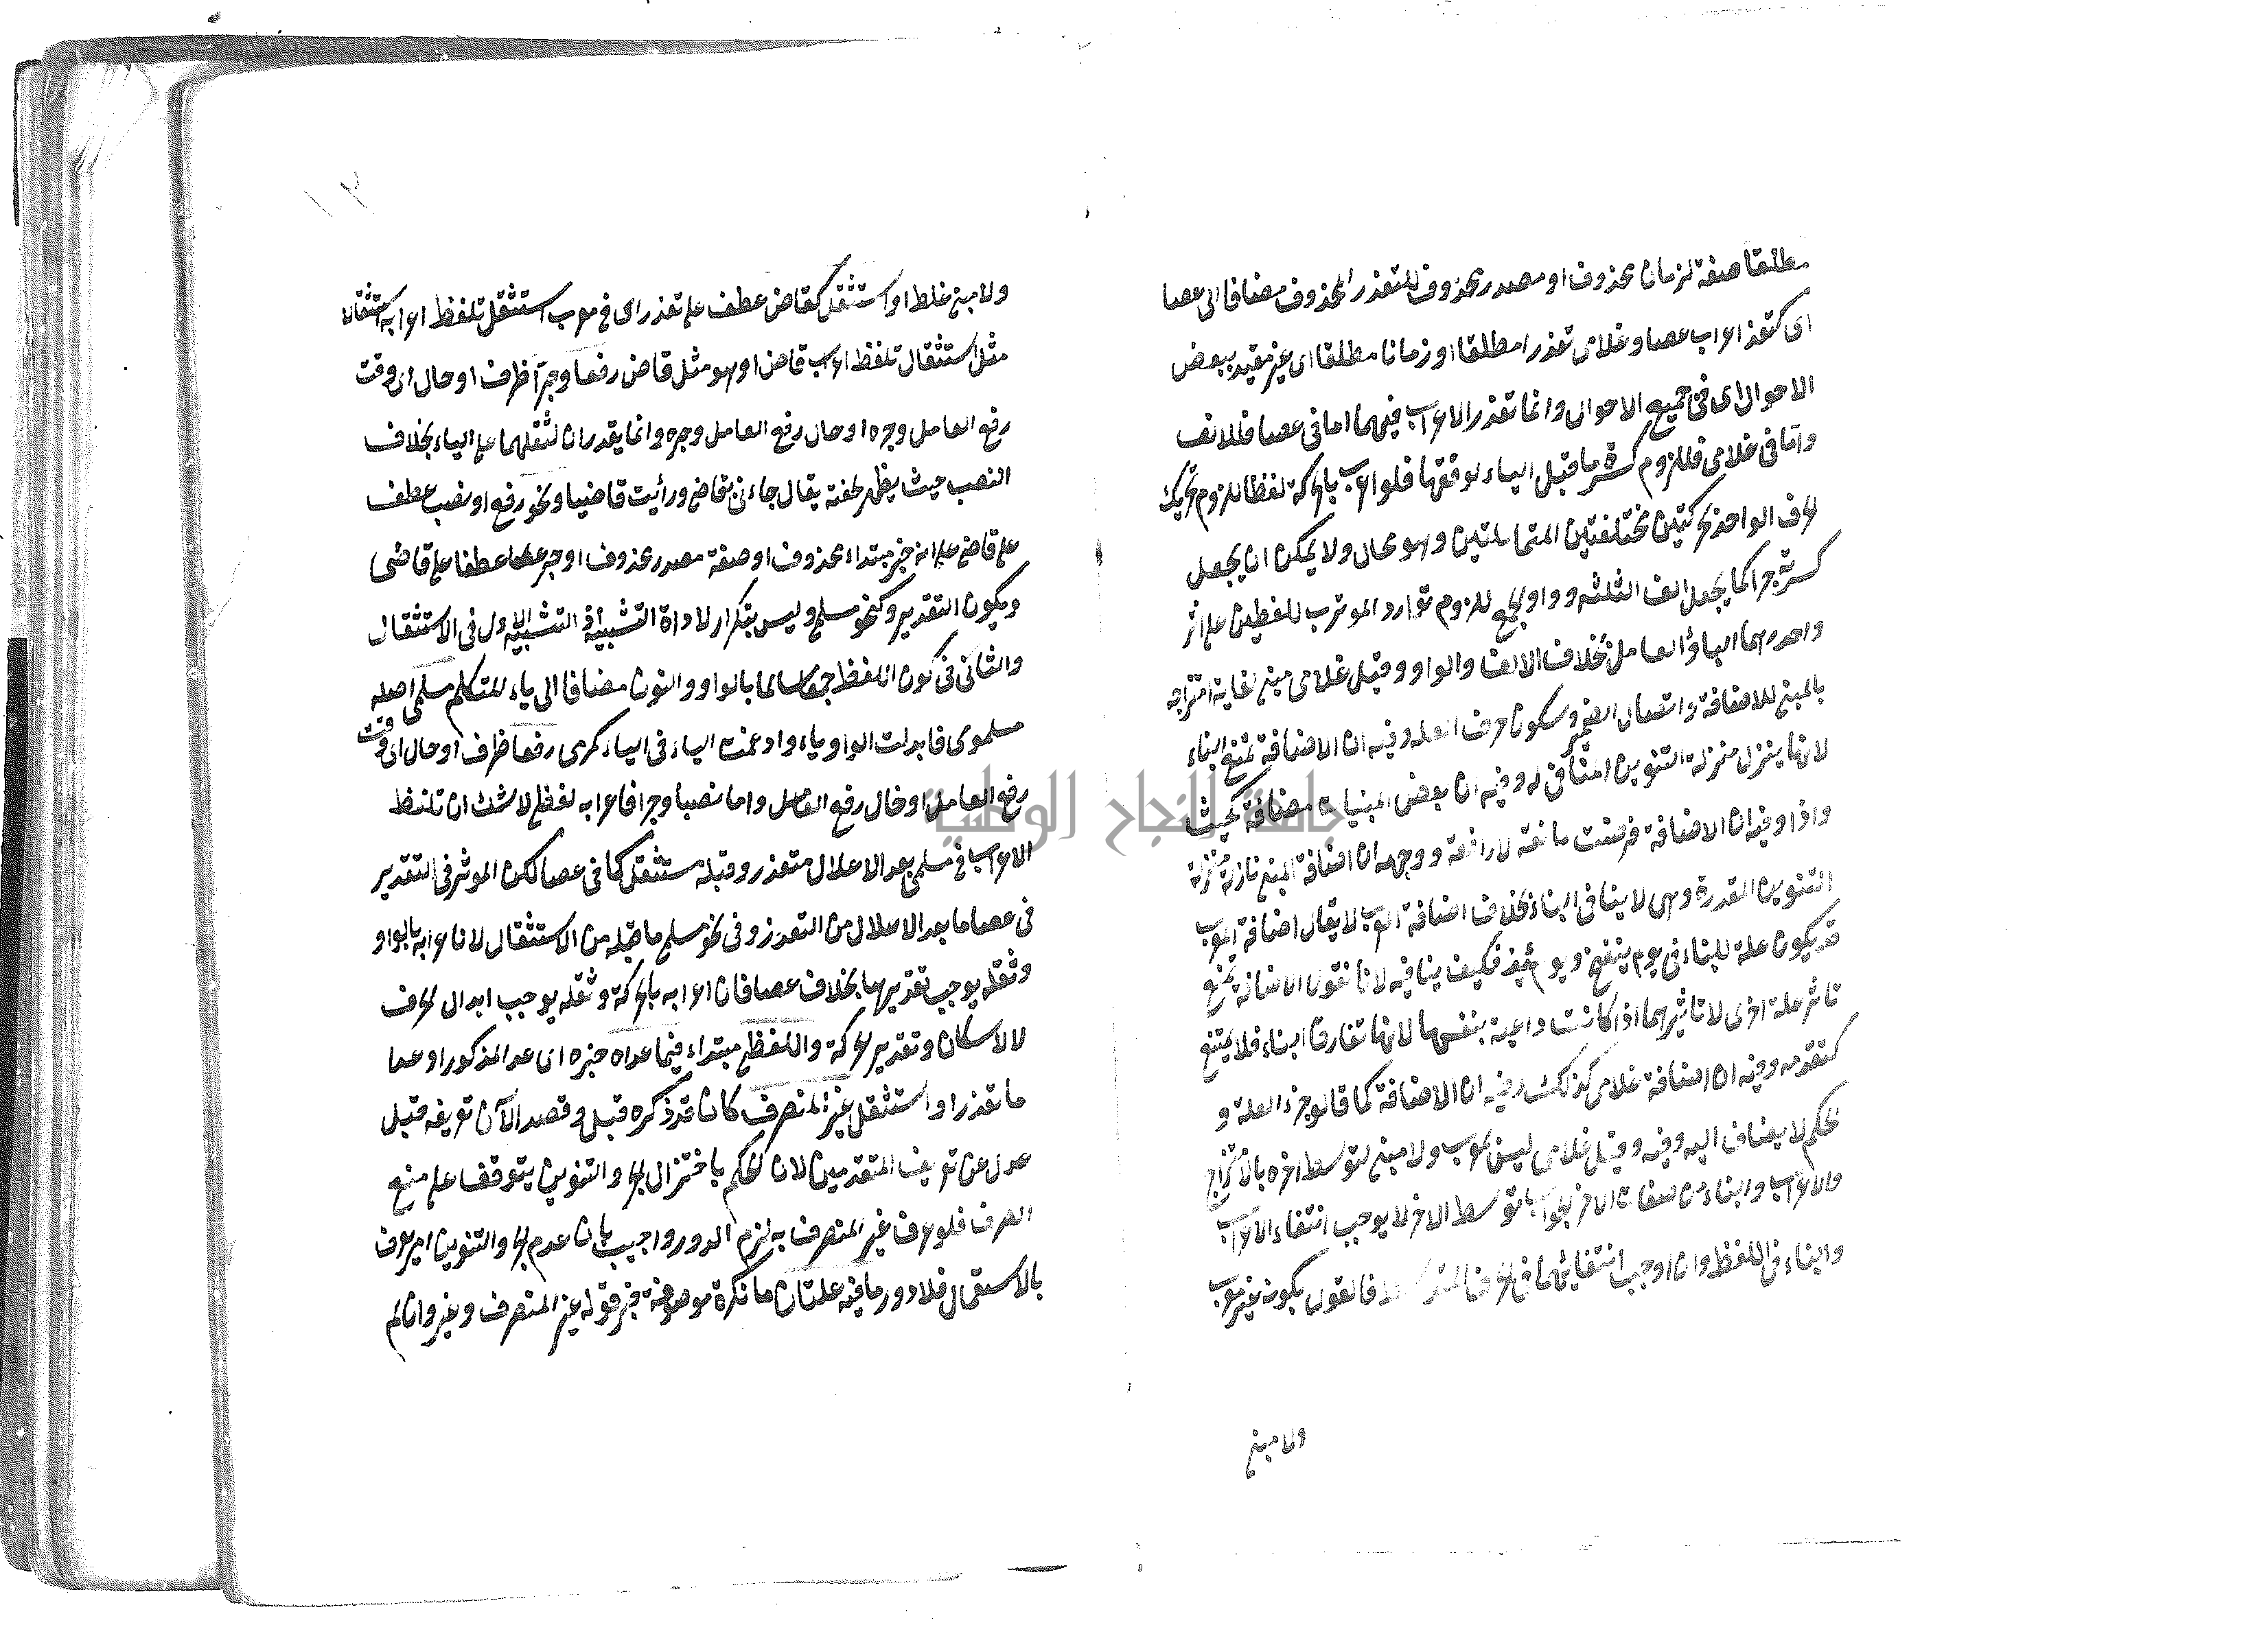 مطلقا صفة لزمان محذوف او مصدر محذوف للتعذر المحذوف مضافا الى عصا
اى كتعذر اعراب عصا وغلامى تعذرا مطلقا او زمانا مطلقا اى غير مقيد ببعض
الاحوال اى فى جميع الاحوال وانما تعذر الاعراب فيهما اما فى عصا فللالف
واما فى غلامى فللزوم كسرة ما قبل الياء لوفقها فلو اعرب بالحركة لفظا للزوم تحريك
الحرف الواحد بحركتين مختلفتين او متماثلتين وهو محال ولا يمكن ان يجعل
كسرته جرا كما يجعل الف الثلثة وواو الجمع للزوم توارد الموثرين اللفظيين على اثر
واحد وهما الياء والعامل بخلاف الالف والواو وقيل غلامى مبنى لغاية امتزاجه
بالمبنى للاضافة واتصال الضمير وسكون حرف العلة وفيه ان الاضافة تمنع البناء
لانها ينزل منزلة التنوين المنافى له وفيه ان بعض المبنيات مضافة كحيث
واذا وفيه ان الاضافة فرضت مانعة لا رافعة ووجهه ان اضافة المبنى نازلة منزلة
التنوين المقدرة وهى لا ينافى البناء بخلاف اضافة المعرب لا يقال اضافة المعرب
قد يكون علة للبناء فى يوم ينفع ويومئذ فكيف ينافيه لانا نقول الاضافة تمنع
تاثير علة اخرى لا تاثيرها اذا كانت داعية بنفسها لانها تفارق البناء فلا يمتنع
كتقدمه وفيه ان اضافة غلامى كذلك وفيه ان الاضافة كما قالوا جزء العلة و
الحكم لا يضاف اليه وفيه وقيل غلامى ليس بمعرب ولا مبنى لتوسط اخره بالامتزاج
والاعراب والبناء من صفات الاخر بتوسط الاخر لا يوجب انتفاء الاعراب
والبناء فى اللفظ وان اوجب انتفائهما فى فالقول بكونه غير معرب
ولا مبنى
١٣
ولا مبنى غلط او استثقل كقاض عطف على تعذر اى فى معرب استثقل تلفظ اعرابه استثقالا
مثل استثقال تلفظ اعراب قاض او هو مثل قاض رفعا وجرا ظرف او حال اى وقت
رفع العامل وجره او حال رفع العامل وجره وانما يقدران لثقلهما على الياء بخلاف
النصب حيث يظهر لخفته يقال جاءنى قاض ورأيت قاضيا ونحو رفع او نصب عطف
على قاض على انه خبر مبتداء محذوف او صفة مصدر محذوف او جر عطفا على قاضى
ويكون التقدير وكنحو مسلمى وليس بتكرار لاداة التشبيه اذ التشبيه الاول فى الاستثقال
والثانى فى كون اللفظ جمعا سالما بالواو والنون مضافا الى ياء المتكلم مسلمى اصله
مسلموى فابدلت الواو ياء وادغمت الياء فى الياء كمرمى رفعا ظرف او حال اى وقت
رفع العامل او حال رفع العامل واما نصبا وجرا فاعرابه لفظى لا شك ان تلفظ
الاعراب فى مسلمى بعد الاعلال متعذر وقبله مستثقل كما فى عصا لكن الموثر فى التقدير
فى عصا ما بعد الاعلال من التعذر وفى نحو مسلمى ما قبله من الاستثقال لان اعرابه بالواو
وثقله يوجب تقديرها بخلاف عصا فان اعرابه بالحركة وثقله يوجب ابدال الحرف
لا الاسكان وتقدير الحركة واللفظى مبتداء فيما عداه خبره اى عدا المذكور او عدا
ما تعذر او استثقل غير المنصرف كان قد ذكره قبل وقصد الآن تعريفه قيل
عدل عن تعريف المتقدمين لان الحكم باختزال الجر والتنوين يتوقف على منع
الصرف فلو عرف غير المنصرف به لزم الدور واجيب بان عدم الجر والتنوين امر يعرف
بالاستعمال فلا دور ما فيه علتان ما نكرة موصوفة خبر قوله غير المنصرف وغير وان لم
جامعة النجاح الوطنية